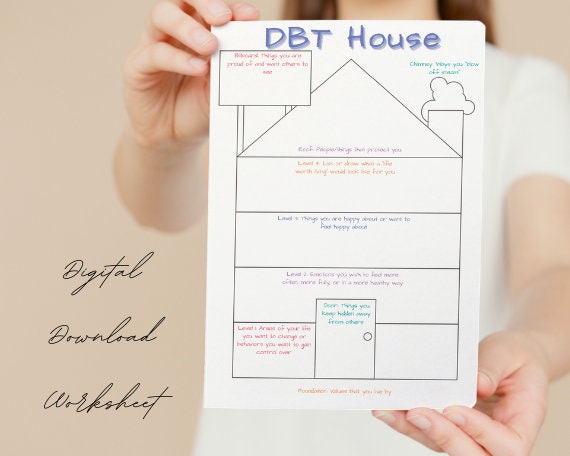 DBT House
Billboard: Things you are
proud of and want others to
see
Chimney: Ways you "blow
off steam"
Roof: People/things that protect you
Level 4: List or draw what a "life
worth living" would look like for you
Level 3: Things you are happy about or want to
feel happy about
Level 2: Emotions you wish to feel more
often, more fully, or in a more healthy way
Door: Things you
keep hidden away
from others
Level 1: Areas of your life
you want to change or
behaviors you want to gain
control over
Foundation: Values that you live by
Digital
Download
Worksheet